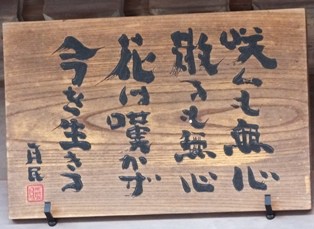 咲くも無心
散るも無心
花は嘆かず
今を生きる
真民